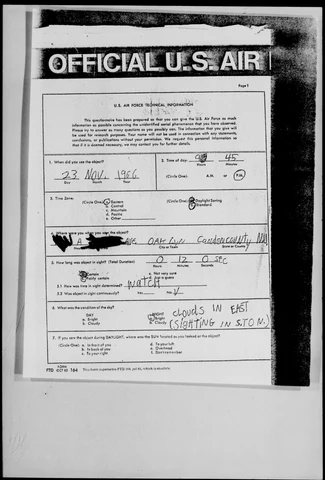 OFFICIAL U.S. AIR
Page 1
U.S. AIR FORCE TECHNICAL INFORMATION
This questionnaire has been prepared so that you can give the U.S. Air Force as much
information as possible concerning the unidentified aerial phenomenon that you have observed.
Please try to answer as many questions as you possibly can. The information that you give will
be used for research purposes. Your name will not be used in connection with any statements,
conclusions, or publications without your permission. We request this personal information so
that if it is deemed necessary, we may contact you for further details.
1. When did you see the object? 2. Time of day 45
23 Nov. 1966
Day Month Year Hour Minutes
(Circle One): A.M. or P.M.
3. Time Zone:
(Circle One): a. Eastern
b. Central
c. Mountain
d. Pacific
e. Other
(Circle One): a. Daylight Saving
b. Standard
4. Where were you when you saw the object?
OAKLYN Camden county
City or Town State or County
5. How long was object in sight? (Total Duration) 0 12 0 sec
Hours Minutes Seconds
a. Certain c. Not very sure
b. Fairly certain d. Just a guess
5.1 How was time in sight determined? Watch
5.2 Was object in sight continuously? Yes No
6. What was the condition of the sky?
DAY NIGHT
a. Bright a. Bright
b. Cloudy b. Cloudy
CLOUDS IN EAST
(SIGHTING IN S.TO N.)
7. IF you saw the object during DAYLIGHT, where was the SUN located as you looked at the object?
(Circle One): a. In front of you d. To your left
b. In back of you e. Overhead
c. To your right f. Don't remember
FORM
FTD OCT 62 164 This form supersedes FTD 164, Jul 61, which is obsolete.